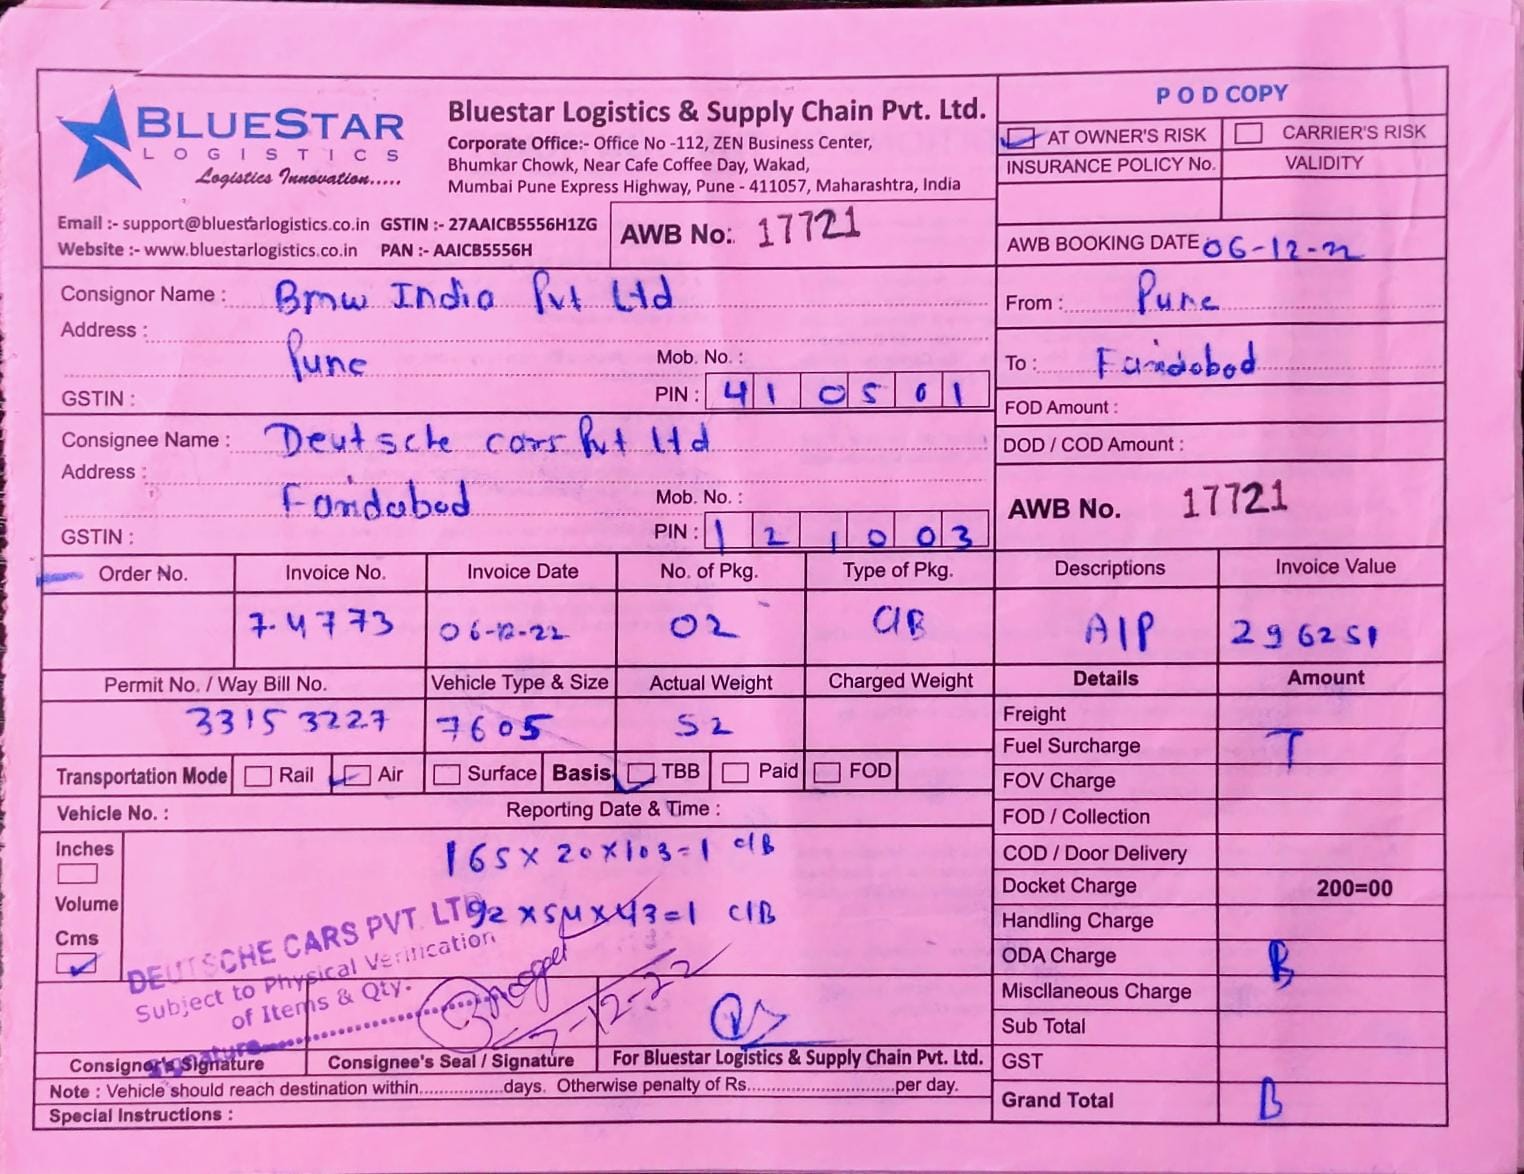 BLUESTAR
LOGISTICS
Logistics Innovation.....
Bluestar Logistics & Supply Chain Pvt. Ltd.
Corporate Office:- Office No -112, ZEN Business Center,
Bhumkar Chowk, Near Cafe Coffee Day, Wakad,
Mumbai Pune Express Highway, Pune - 411057, Maharashtra, India
Email :- support@bluestarlogistics.co.in GSTIN :- 27AAICB5556H1ZG
Website :- www.bluestarlogistics.co.in PAN :- AAICB5556H
AWB No: 17721
POD COPY
AT OWNER'S RISK CARRIER'S RISK
INSURANCE POLICY No. VALIDITY
AWB BOOKING DATE 06-12-22
Consignor Name : Bmw India Pvt Ltd
Address :
Pune
Mob. No. :
GSTIN : PIN : 410501
From : Pune
To : Faridabad
FOD Amount :
DOD / COD Amount :
Consignee Name : Deutsche cars Pvt Ltd
Address :
Faridabad
Mob. No. :
GSTIN : PIN : 121003
AWB No. 17721
Order No. Invoice No. Invoice Date No. of Pkg. Type of Pkg. Descriptions Invoice Value
74773 06-12-22 02 C/B A/P 296251
Permit No. / Way Bill No. Vehicle Type & Size Actual Weight Charged Weight Details Amount
33153227 7605 52
Freight
Fuel Surcharge T
FOV Charge
FOD / Collection
COD / Door Delivery
Docket Charge 200=00
Handling Charge
ODA Charge B
Miscllaneous Charge
Sub Total
GST
Grand Total B
Transportation Mode Rail Air Surface Basis TBB Paid FOD
Vehicle No. : Reporting Date & Time :
Inches
Volume
Cms
165 x 20 x 103 = 1 C/B
92 x 54 x 43 = 1 C/B
DEUTSCHE CARS PVT. LTD.
Subject to Physical Verification
of Items & Qty.
Signature
7-12-22
Consignor's Signature Consignee's Seal / Signature For Bluestar Logistics & Supply Chain Pvt. Ltd.
Note : Vehicle should reach destination within...............days. Otherwise penalty of Rs..........................per day.
Special Instructions :